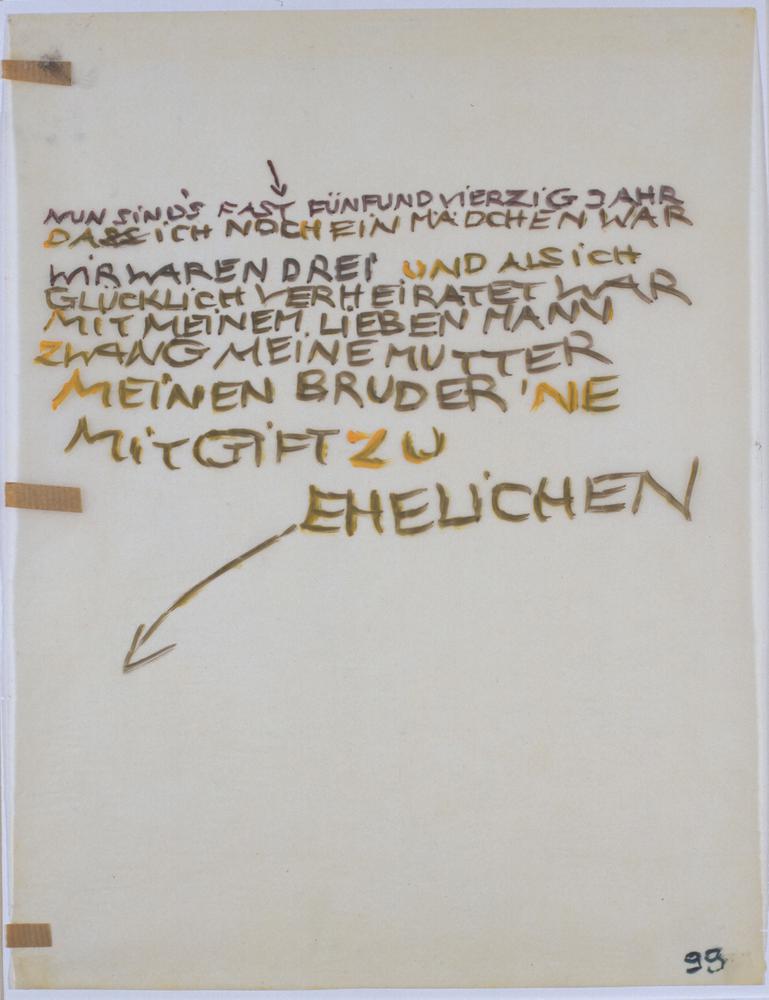 NUN SIND'S FAST FÜNFUNDVIERZIG JAHR
DASS ICH NOCH EIN MÄDCHEN WAR
WIR WAREN DREI UND ALS ICH
GLÜCKLICH VERHEIRATET WAR
MIT MEINEM LIEBEN MANN
ZWANG MEINE MUTTER
MEINEN BRUDER 'NE
MITGIFT ZU
EHELICHEN
99